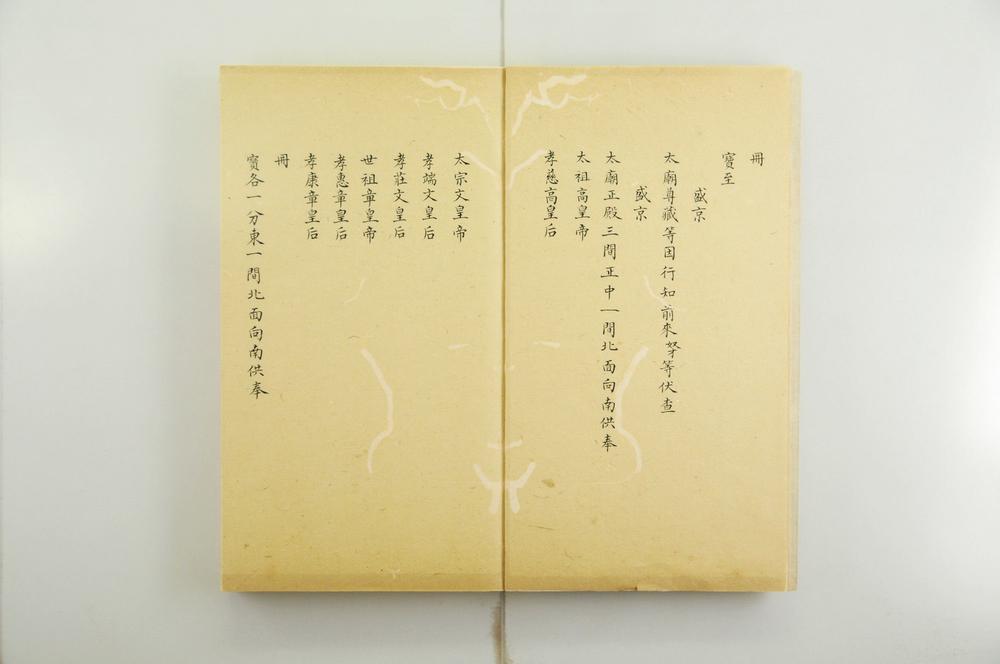 冊
寶至
盛京
太廟尊藏等因行知前來孥等伏查
盛京
太廟正殿三間正中一間北面向南供奉
太祖高皇帝
孝慈高皇后
太宗文皇帝
孝端文皇后
孝莊文皇后
世祖章皇帝
孝惠章皇后
孝康章皇后
冊
寶各一分東一間北面向南供奉